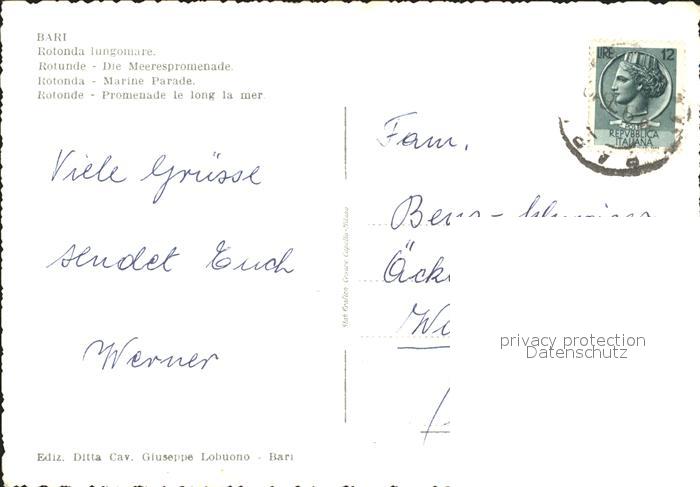 BARI
Rotonda lungomare.
Rotunde - Die Meerespromenade.
Rotonda - Marine Parade.
Rotonde - Promenade le long la mer.
Viele Grüsse
sendet Euch
Werner
Ediz. Ditta Cav. Giuseppe Lobuono - Bari
LIRE 12
REPVBBLICA
ITALIANA
Fam.
privacy protection
Datenschutz